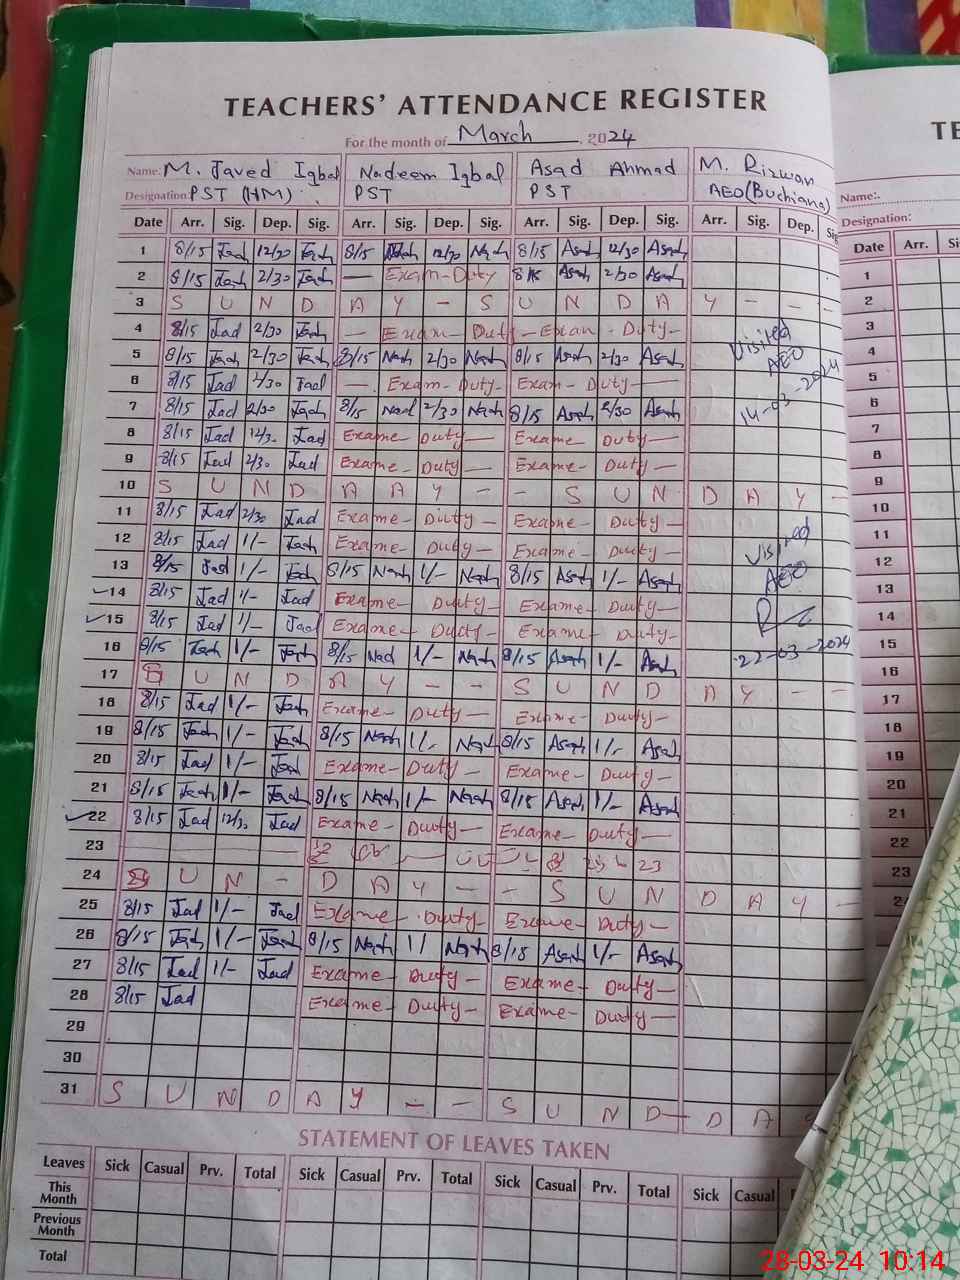 TEACHERS' ATTENDANCE REGISTER
For the month of March, 2024
Name: M. Javed Iqbal Nadeem Iqbal Asad Ahmad M. Rizwan
Designation: PST (HM) PST PST AEO (Buchiana)
Date Arr. Sig. Dep. Sig. Arr. Sig. Dep. Sig. Arr. Sig. Dep. Sig. Arr. Sig. Dep. Sig
1 8/15 Jad 12/30 Jad 8/15 Nad 12/30 Nad 8/15 Asad 12/30 Asad
2 8/15 Jad 2/30 Jad — Exam-Duty 8/15 Asad 2/30 Asad
3 S U N D A Y - S U N D A Y - - -
4 8/15 Jad 2/30 Jad — Exam-Duty-Exam-Duty-
5 8/15 Jad 2/30 Jad 8/15 Nad 2/30 Nad 8/15 Asad 2/30 Asad
6 8/15 Jad 2/30 Jad — Exam-Duty-Exam-Duty—
7 8/15 Jad 2/30 Jad 8/15 Nad 2/30 Nad 8/15 Asad 2/30 Asad
8 8/15 Jad 12/30 Jad Exame-Duty— Exame-Duty—
9 8/15 Jad 2/30 Jad Exame-Duty— Exame-Duty—
10 S U N D A A Y - - S U N D A Y -
11 8/15 Jad 2/30 Jad Exame-Duty— Exame-Duty—
12 8/15 Jad 1/- Jad Exame-Duty— Exame-Duty—
13 8/15 Jad 1/- Jad 8/15 Nad 1/- Nad 8/15 Asad 1/- Asad
14 8/15 Jad 1/- Jad Exame-Duty— Exame-Duty—
15 8/15 Jad 1/- Jad Exame-Duty- Exame-Duty-
16 8/15 Jad 1/- Jad 8/15 Nad 1/- Nad 8/15 Asad 1/- Asad
17 S U N D A Y - - S U N D A Y - -
18 8/15 Jad 1/- Jad Exame-Duty— Exame-Duty-
19 8/15 Jad 1/- Jad 8/15 Nad 1/- Nad 8/15 Asad 1/- Asad
20 8/15 Jad 1/- Jad Exame-Duty- Exame-Duty-
21 8/15 Jad 1/- Jad 8/15 Nad 1/- Nad 8/15 Asad 1/- Asad
22 8/15 Jad 12/30 Jad Exame-Duty- Exame-Duty—
23
24 S U N - D A Y - - S U N D A Y -
25 8/15 Jad 1/- Jad Exame-Duty- Exame-Duty-
26 8/15 Jad 1/- Jad 8/15 Nad 1/ Nad 8/15 Asad 1/- Asad
27 8/15 Jad 1/- Jad Exame-Duty- Exame-Duty-
28 8/15 Jad Exame-Duty- Exame-Duty—
29
30
31 S U N D A Y - - S U N D- D A
Visited
AEO
14-03-2024
Visited
AEO
22-03-2024
STATEMENT OF LEAVES TAKEN
Leaves Sick Casual Prv. Total Sick Casual Prv. Total Sick Casual Prv. Total Sick Casual
This Month
Previous Month
Total
TE
Name:
Designation:
Date Arr. Si
1
2
3
4
5
6
7
8
9
10
11
12
13
14
15
16
17
18
19
20
21
22
23
28-03-24 10:14